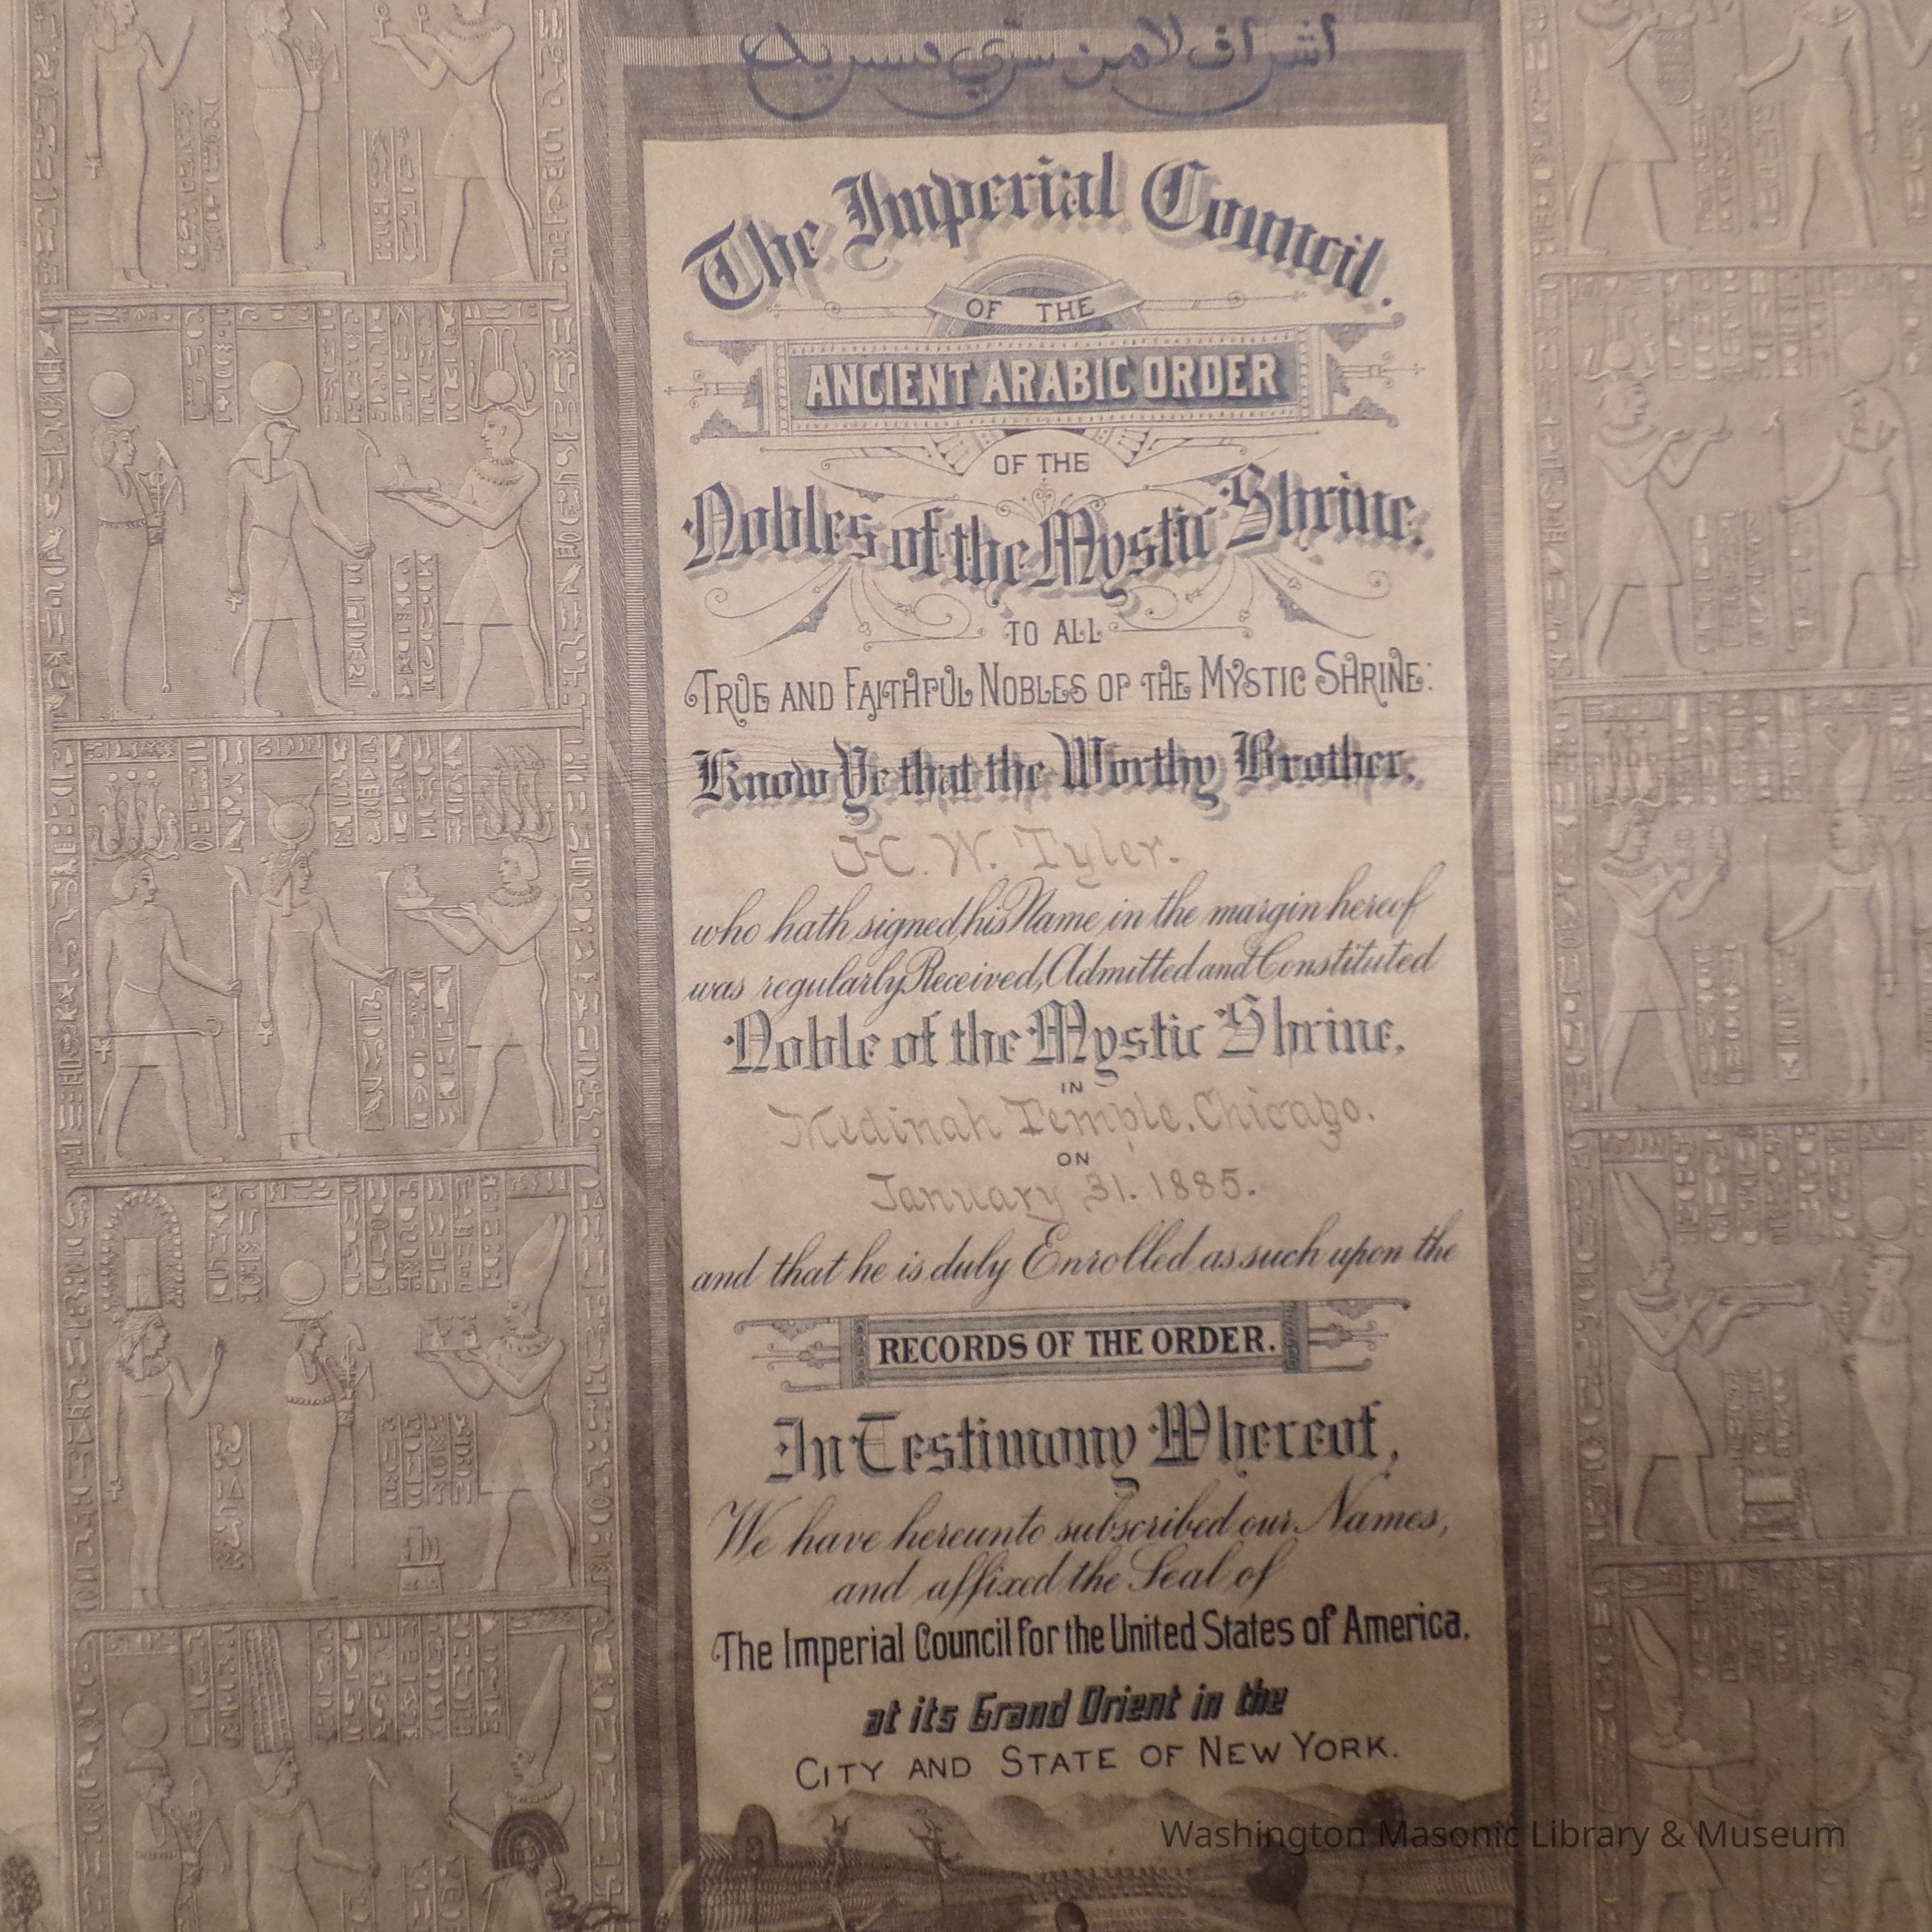 اشراف لامن ستي مسريك
The Imperial Council.
OF THE
ANCIENT ARABIC ORDER
OF THE
Nobles of the Mystic Shrine.
TO ALL
TRUE AND FAITHFUL NOBLES OF THE MYSTIC SHRINE:
Know Ye that the Worthy Brother,
H.C. W. Tyler.
who hath signed his Name in the margin hereof
was regularly Received, Admitted and Constituted
Noble of the Mystic Shrine,
IN
Medinah Temple. Chicago.
ON
January 31. 1885.
and that he is duly Enrolled as such upon the
RECORDS OF THE ORDER.
In Testimony Whereof,
We have hereunto subscribed our Names,
and affixed the Seal of
The Imperial Council for the United States of America.
at its Grand Orient in the
CITY AND STATE OF NEW YORK.
Washington Masonic Library & Museum